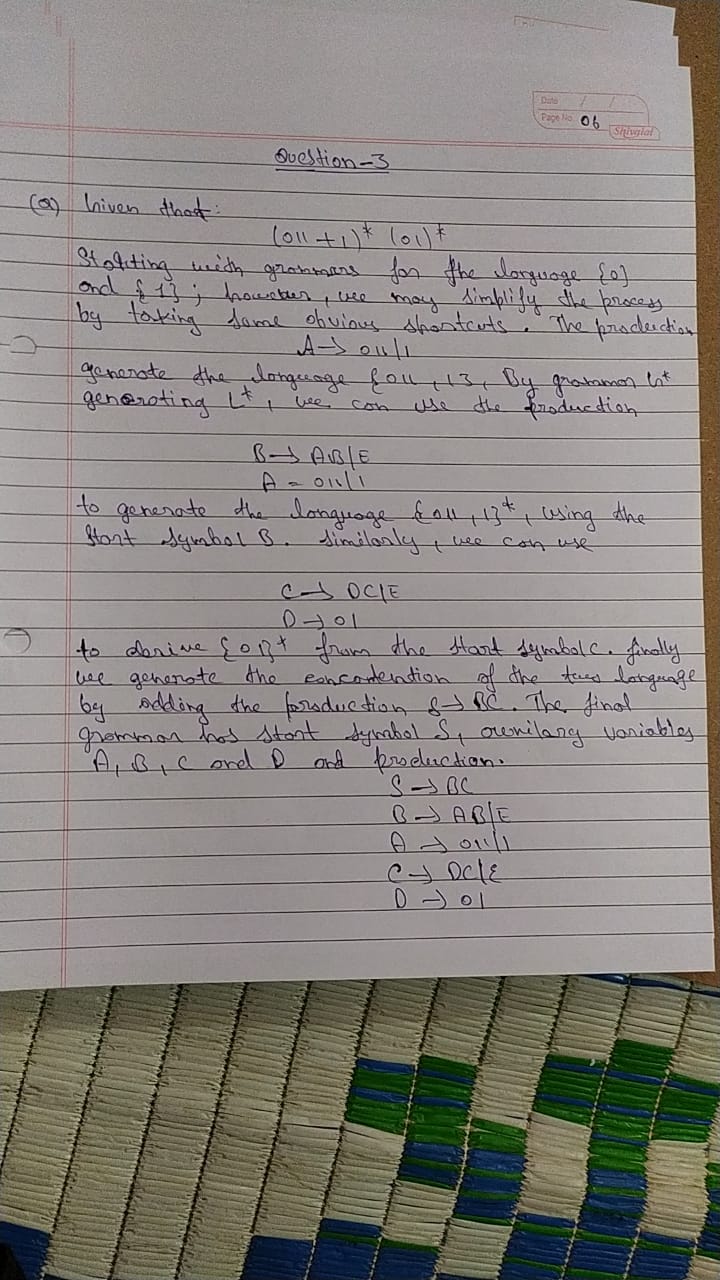 Date / /
Page No. 06
Shivalal
Question-3
(a) Given that:
(011+1)* (01)*
Starting with grammars for the language {0}
and {1}; however, we may simplify the process
by taking some obvious shortcuts. The production
A→ 011/1
generate the language {011,1}, By grammar G*
generating L*, we can use the production
B→ AB/E
A = 011/1
to generate the language {011,1}*, using the
start symbol B. Similarly, we can use
C→ DC/E
D→ 01
to derive {01}* from the start symbol C. finally
we generate the of the two language
by adding the production S→ BC. The final
grammar has start symbol S, variables
A, B, C and D and production.
S→ BC
B→ AB/E
A→ 011/1
C→ DC/E
D→ 01